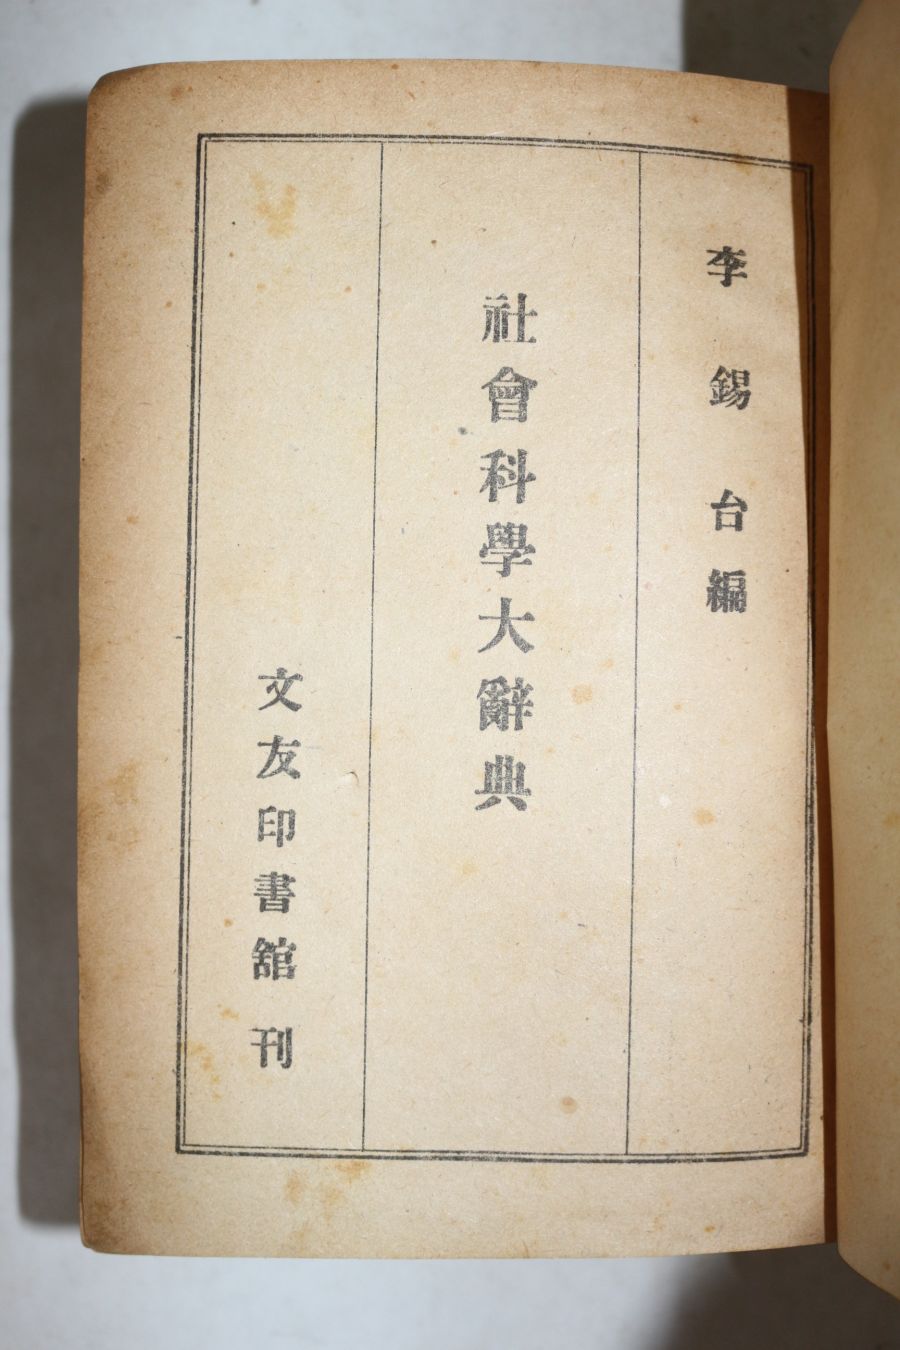 李錫台編
社會科學大辭典
文友印書舘刊